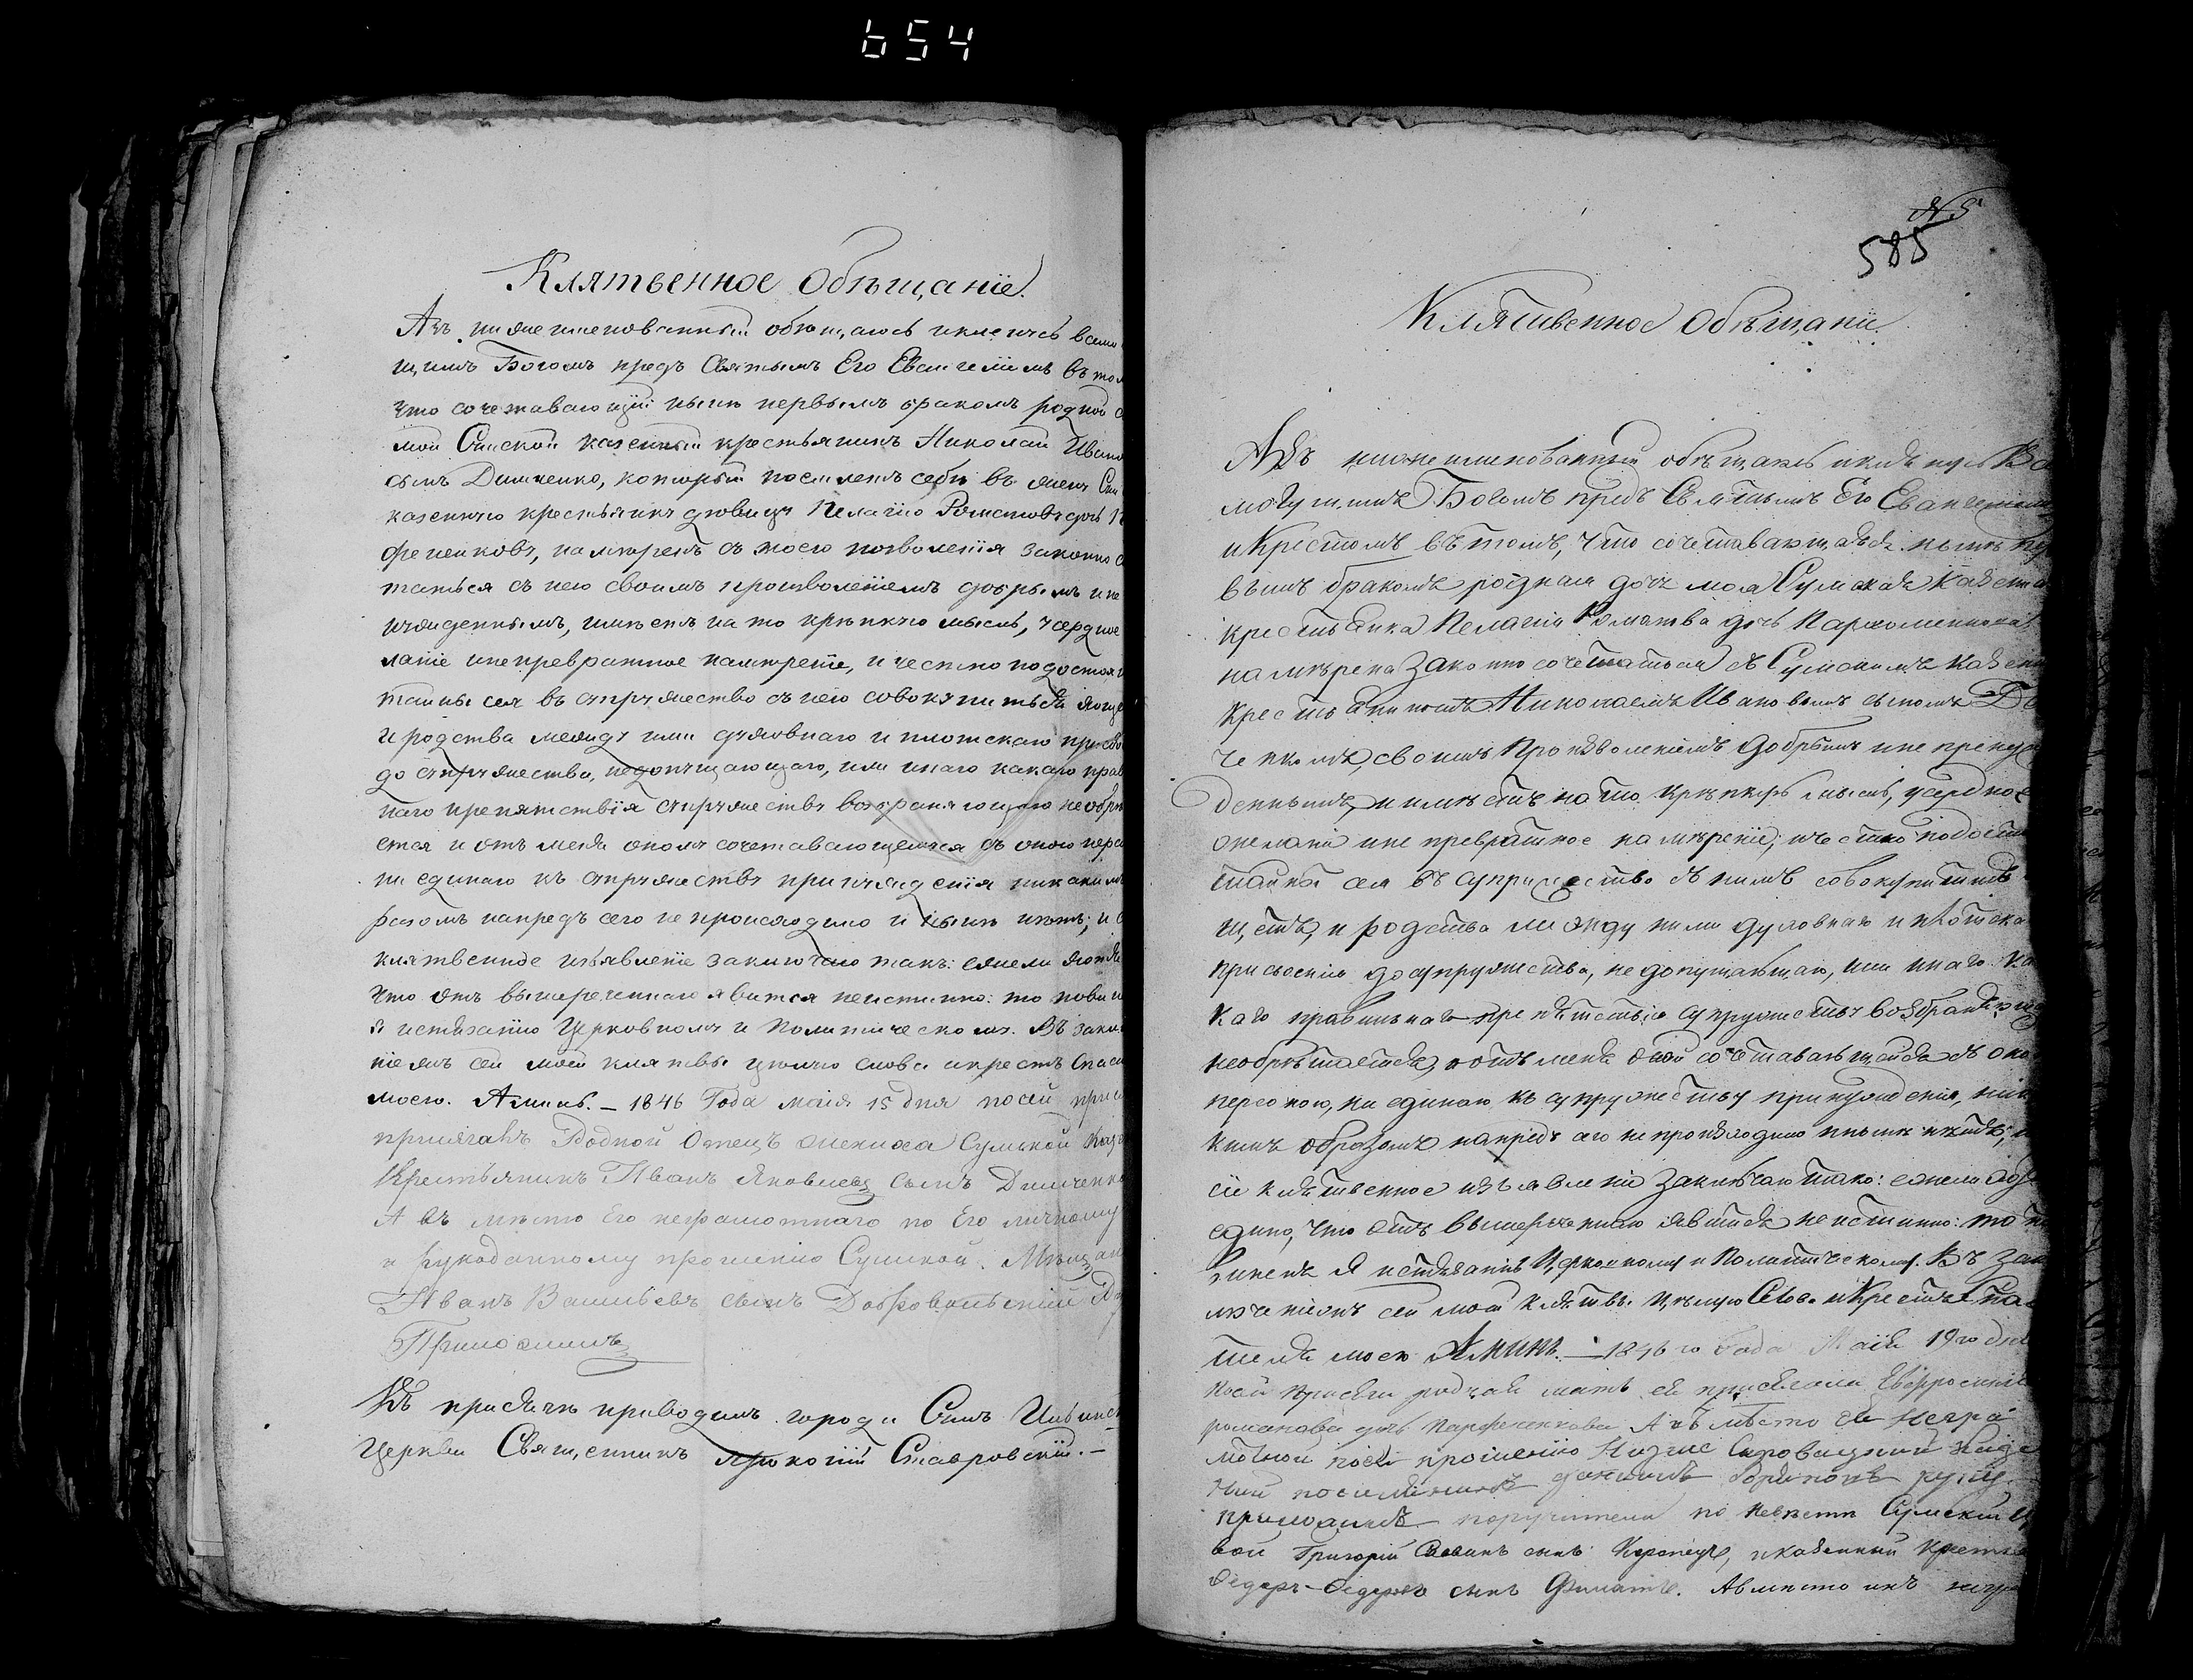 654
Клятвенное Обѣщаніе.
Азъ нижеименованный обѣщаюсь и кленусь всемо
щимъ Богомъ предъ Святымъ Его Евангелиемъ въ то
что сочетавающій нынѣ первымъ бракомъ родной
мой Сумской казенный крестьянинъ Николай Ивано
сынъ Димченко, который поемлетъ себѣ въ жену Сум
казенную крестьянку дѣвицу Пелагію Романову дочь П
фененкову, намѣренъ съ моего позволенія законно со
таться съ нею своимъ произволеніемъ добрымъ и не
нужденнымъ, имѣетъ на то крѣпкую мысль, усердное
ланіе и непревратное намѣреніе, и честно по достоя
тайны сея въ супружество съ нею совокупиться
И родства между ими духовнаго и плотскаго присво
до супружества, недопущающаго, или инаго какаго прав
наго препятствія супружеству возбраняющаго не обрѣ
ется и отъ меня оному сочетавающемуся съ оною персо
ни единаго къ супружеству принужденія никакимъ
разомъ напредъ сего не происходило и нынѣ нѣтъ; и с
клятвенное изъявленіе заключаю такъ: ежели
Что отъ вышереченнаго явится неистинно: то пови
я истязанію Церковному и Политическому. Въ заклю
ніемъ сей моей клятвы цѣлую слова и крестъ Спаси
моего. Аминь. — 1846 Года маія 15 дня по сей прися
присягалъ Родной Отецъ жениха Сумской Каз
Крестьянинъ Иванъ Яковлевъ сынъ Димченко
А въ мѣсто Его неграмотнаго по Его личному
и рукоданному прошенію Сумской Мѣщан
Иванъ Васильевъ сынъ Добровольскій
Приложилъ
Къ присягѣ приводилъ города Сумъ Ильинс
Церкви Священникъ Прокопій Ставровскій. —
№ 5
585
Клятвенное Обѣщаніе.
Азъ нижеименованный обѣщаюсь и кленусь Вс
могущимъ Богомъ предъ Святымъ Его Евангелиемъ
и Крестомъ въ томъ, что сочетавающаяся нынѣ пе
вымъ бракомъ родная дочь моя Сумская Казенная
крестьянка Пелагія Романова дочь Пархоменкова
намѣрена законно сочетаться съ Сумскимъ Казен
Крестьяниномъ Николаемъ Ивановымъ сыномъ
ченкомъ, своимъ произволеніемъ добрымъ и не прину
деннымъ, и имѣетъ на то крѣпкую мысль, усердное
желаніе и не превратное намѣреніе; и честно по досто
тайны сея въ супружество съ нимъ совокупиться
щетъ, и родства между ними духовнаго и плотска
присвоенія до супружества, не допущающаго, или инаго ка
каго правильнаго препятствія супружеству возбраняюща
необрѣтается, и отъ меня оной сочетавающейся съ оно
персоною, ни единаго къ супружеству принужденія, ник
кимъ образомъ напредъ сего не происходило и нынѣ нѣтъ; и
сіе клятвенное изъявленіе заключаю тако: ежели
едино, что отъ вышереченнаго явится не истинно: то п
винна я истязанію Церковному и Политическому. Въ зак
люченіемъ сей моей клятвы цѣлую Слова и Крестъ Спа
теля моего Аминь. — 1846го Года Маія 19го дня
по сей присяги родная мать ей присягала Евфросинія
романова дочь Парфененкова А въ мѣсто ея негра
мотной по ея прошенію
ный поселянинъ руку
приложилъ поручители по невѣсты Сумскій
вой Григорій сынъ и казенный крестья
Федоръ Федоровъ сынъ А вмѣсто ихъ негра